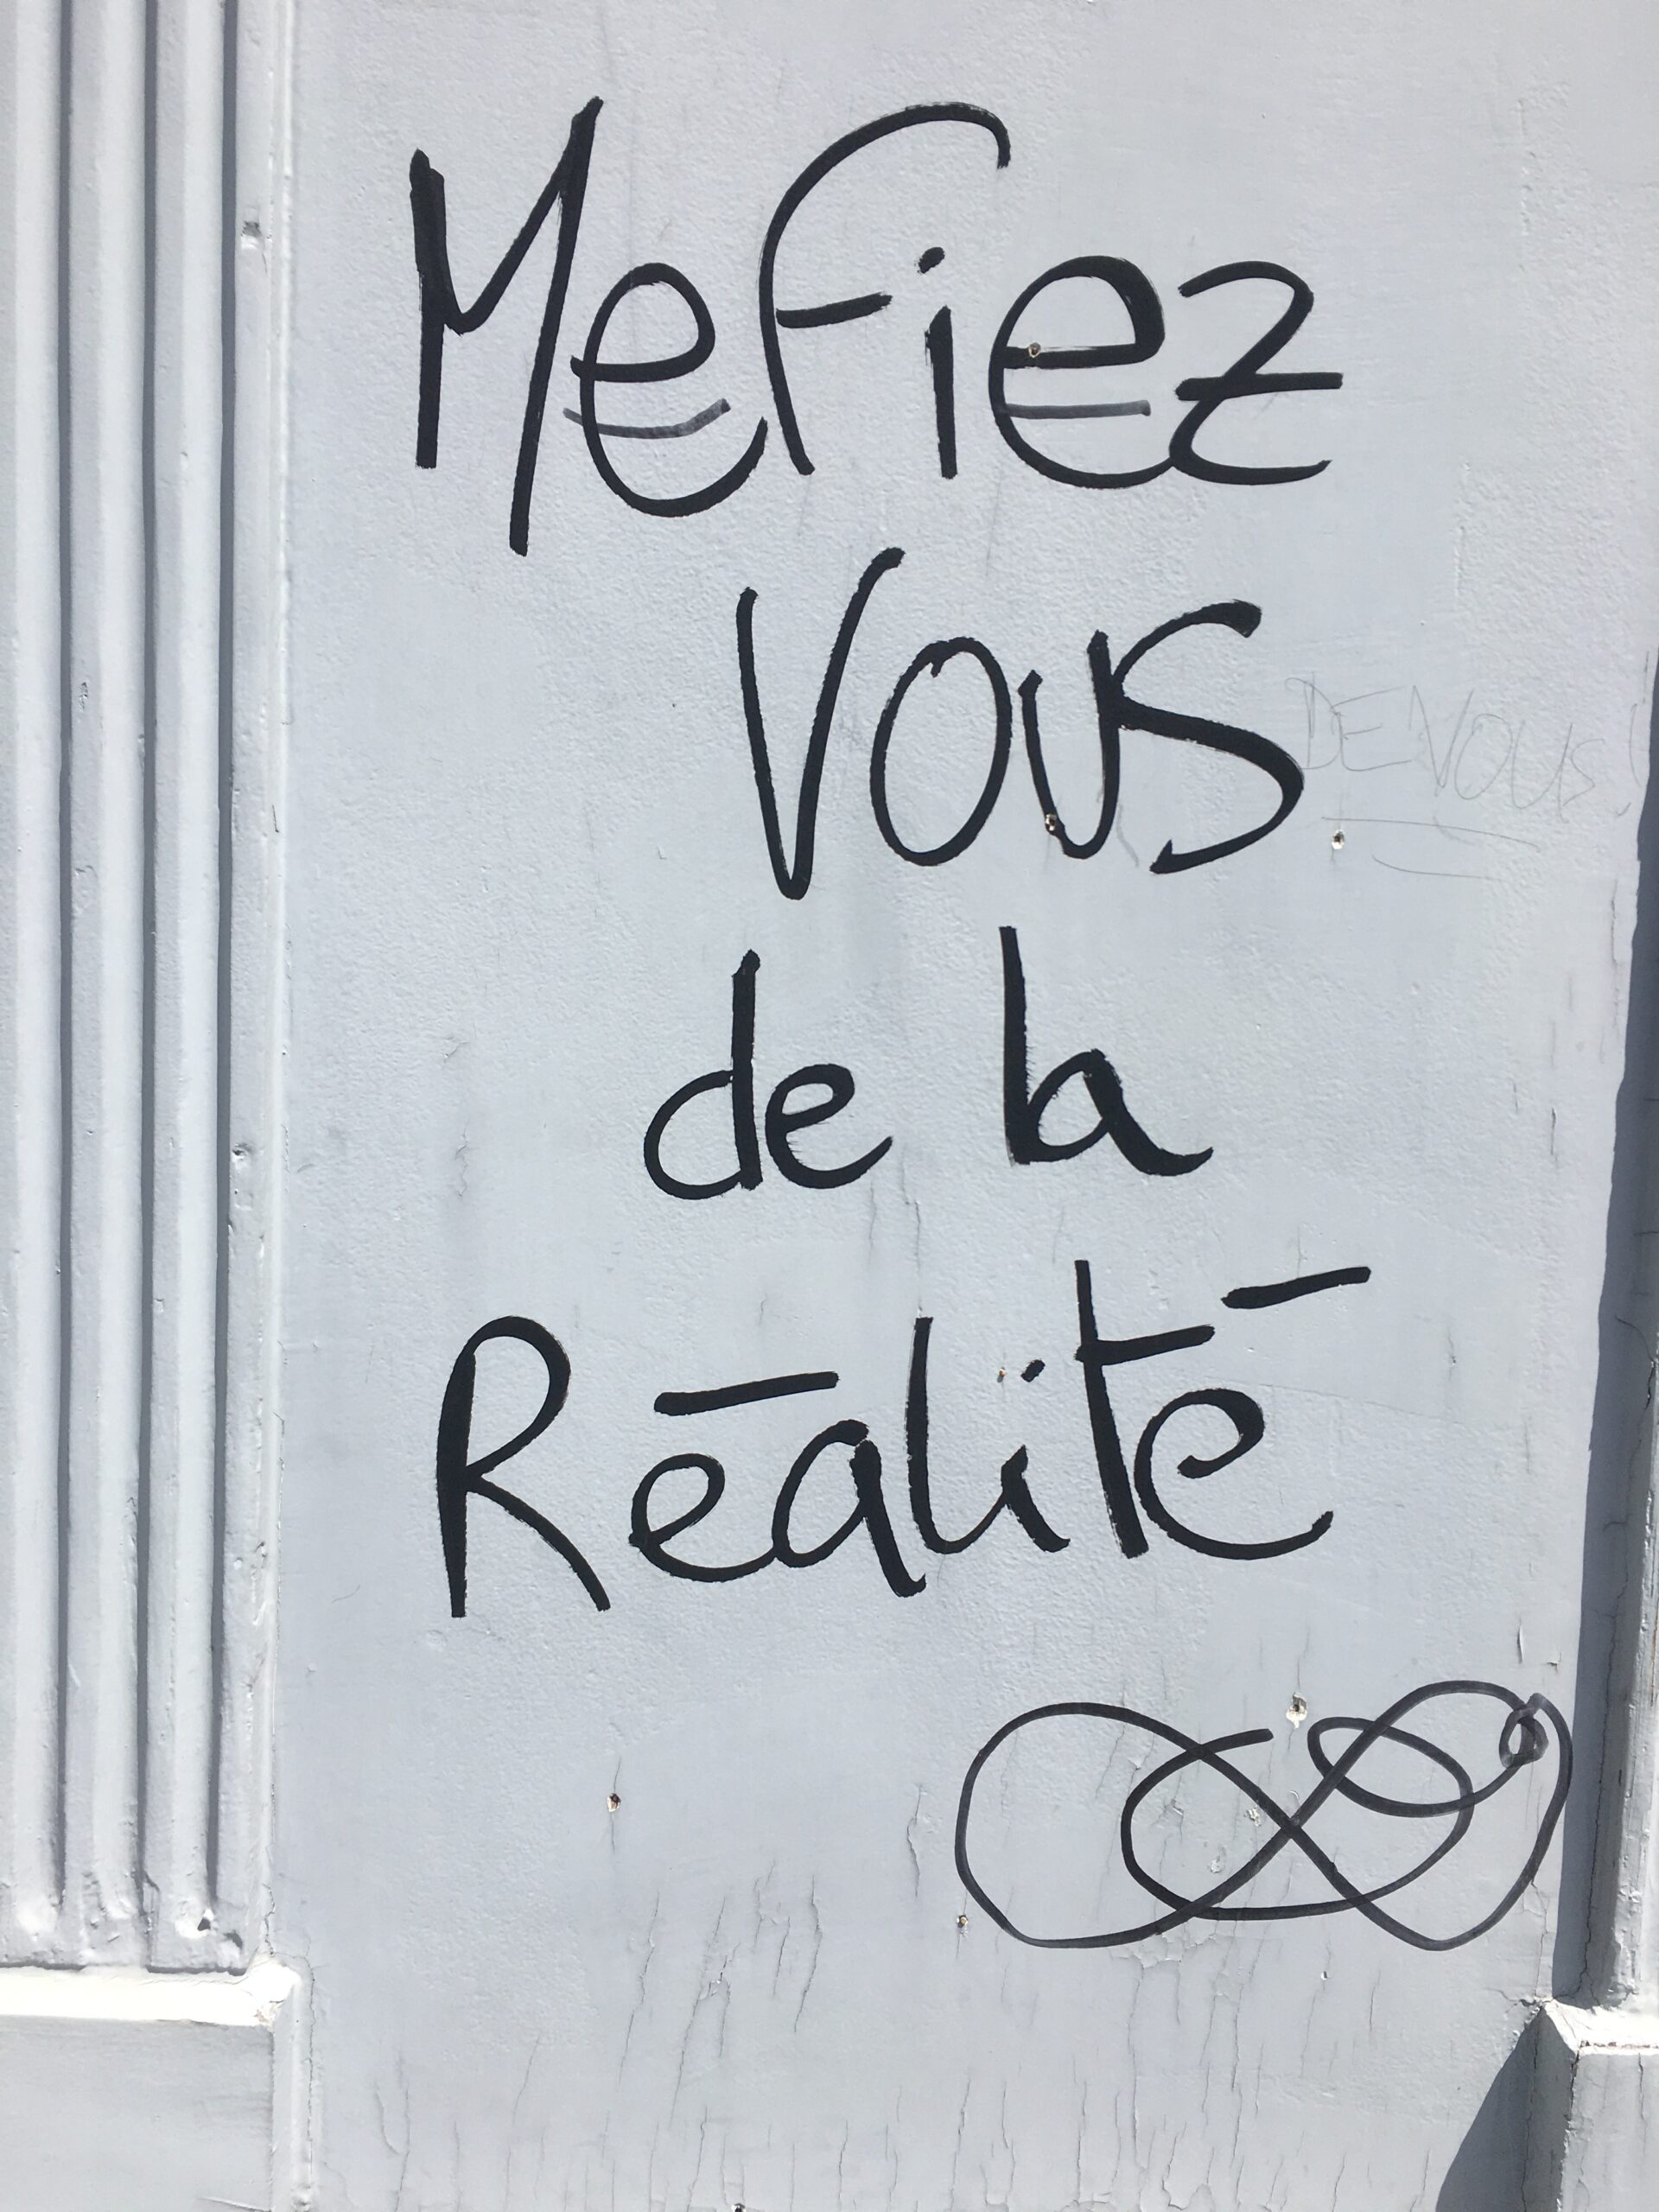 Mefiez
vous
DE VOUS!
de la
Réalité